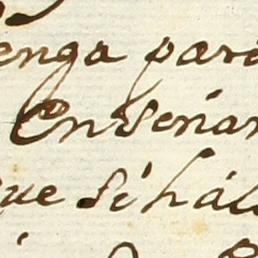 enga para
Enseñar
que si hál